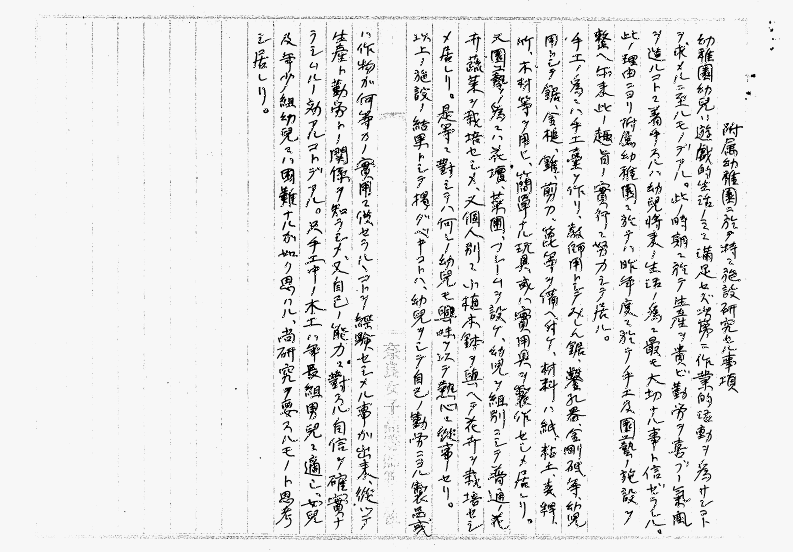 附属幼稚園ニ於テ特ニ施設研究セル事項
幼稚園幼児ハ遊戯的生活ノミニ満足セズ次第ニ作業的活動ヲ為サンコト
ヲ求メルニ至ルモノデアル。此ノ時期ニ於テ生産ヲ貴ビ勤労ヲ喜ブノ気風
ヲ造ルコトニ着手スルハ幼児将来ノ生活ノ為ニ最モ大切ナル事ト信ゼラル。
此ノ理由ニヨリ附属幼稚園ニ於テハ昨年度ニ於テ手工及園藝ノ施設ヲ
整ヘ年来此ノ趣旨ノ實行ニ努力シテ居ル。
手工ノ為ニハ手工臺ヲ作リ、教師用トシテみしん鋸、鑿孔器金剛砥等、幼児
用トシテ鋸、金槌、錐、剪刀、篦等ヲ備ヘ付ケ、材料ハ紙、粘土、麦稈、
竹、木料等ヲ用ヒ、簡單ナル玩具、或ハ實用具ヲ製作セシメ居レリ。
又園藝ノ為ニハ花壇、菜園、フレームヲ設ケ、幼児ノ組別ニシテ普通ノ花
卉蔬菜ヲ栽培セシメ、又個人別ニ小植木鉢ヲ與ヘテ花卉ヲ栽培セシ
メ居レリ。是等ニ對シテハ何レノ幼児モ興味ヲ以テ熱心ニ従事セリ。
以上ノ施設ノ結果トシテ擧グベキコトハ、幼児ヲシテ自己ノ勤労ニヨル製品或
ハ作物ガ何等カノ實用ニ供セラルルコトヲ経験セシメル事ガ出来、従ッテ
生産ト勤労トノ関係ヲ知ラシメ、又自己ノ能力ニ對スル自信ヲ確實ナ
ラシムルノ効アルコトデアル。只手工中ノ木工ハ年長組男児ニ適シ、女児
及年少ノ組幼児ニハ困難ナルガ如ク思ハル、尚研究ヲ要スルモノト思考
シ居レリ。